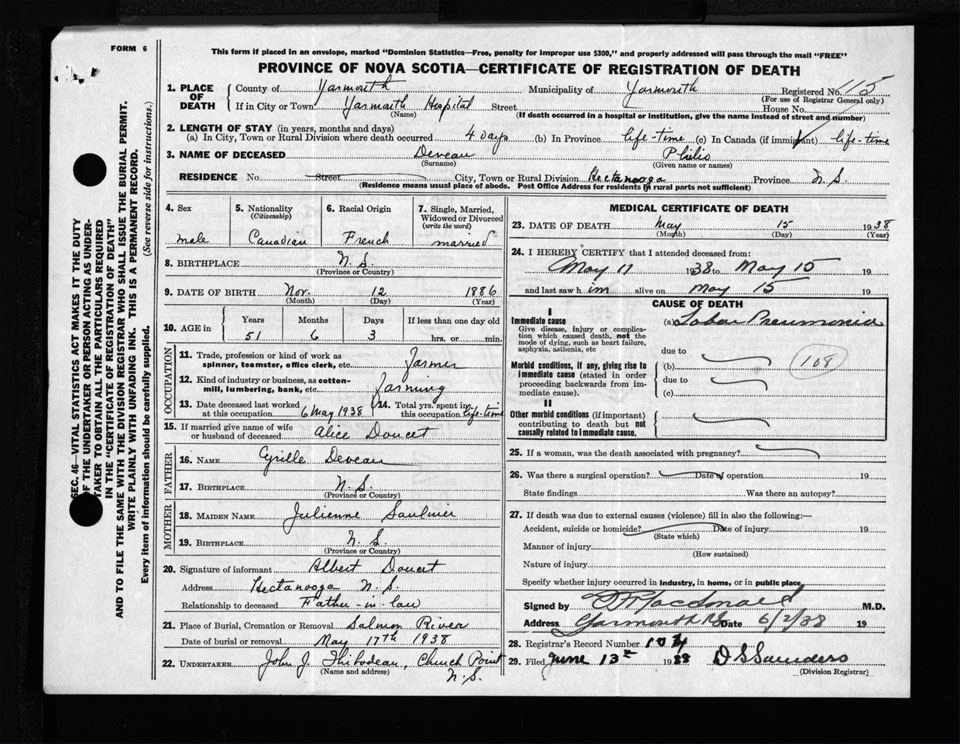 FORM 6
This form if placed in an envelope, marked "Dominion Statistics—Free, penalty for improper use $300," and properly addressed will pass through the mail "FREE"
PROVINCE OF NOVA SCOTIA—CERTIFICATE OF REGISTRATION OF DEATH
1. PLACE OF DEATH County of Yarmouth Municipality of Yarmouth Registered No. 115
(For use of Registrar General only)
If in City or Town Yarmouth Hospital Street House No.
(Name) (If death occurred in a hospital or institution, give the name instead of street and number)
2. LENGTH OF STAY (in years, months and days)
(a) In City, Town or Rural Division where death occurred 4 days (b) In Province life-time (c) In Canada (if immigrant) life-time
3. NAME OF DECEASED Deveau Philip
(Surname) (Given name or names)
RESIDENCE No. Street City, Town or Rural Division Hectanooga Province N.S.
(Residence means usual place of abode. Post Office Address for residents in rural parts not sufficient)
4. Sex 5. Nationality (Citizenship) 6. Racial Origin 7. Single, Married, Widowed or Divorced (write the word)
male Canadian French married
8. BIRTHPLACE N.S.
(Province or Country)
9. DATE OF BIRTH Nov. 12 1886
(Month) (Day) (Year)
10. AGE in Years Months Days If less than one day old
51 6 3 hrs. or min.
OCCUPATION
11. Trade, profession or kind of work as spinner, teamster, office clerk, etc. Farmer
12. Kind of industry or business, as cotton-mill, lumbering, bank, etc. Farming
13. Date deceased last worked at this occupation 6 May 1938 14. Total yrs. spent in this occupation life-time
15. If married give name of wife or husband of deceased Alice Doucet
FATHER
16. NAME Cyrille Deveau
17. BIRTHPLACE N.S.
(Province or Country)
MOTHER
18. MAIDEN NAME Julienne Saulnier
19. BIRTHPLACE N.S.
(Province or Country)
20. Signature of informant Albert Doucet
Address Hectanooga N.S.
Relationship to deceased Father-in-law
21. Place of Burial, Cremation or Removal Salmon River
Date of burial or removal May 17th 1938
22. UNDERTAKER John J. Thibodeau, Church Point N.S.
(Name and address)
MEDICAL CERTIFICATE OF DEATH
23. DATE OF DEATH May 15 1938
(Month) (Day) (Year)
24. I HEREBY CERTIFY that I attended deceased from:
May 11 1938 to May 15 19
and last saw him alive on May 15 19
CAUSE OF DEATH
I
Immediate cause (a) Lobar Pneumonia
Give disease, injury or complication which caused death, not the mode of dying, such as heart failure, asphyxia, asthenia, etc
due to
Morbid conditions, if any, giving rise to immediate cause (stated in order proceeding backwards from immediate cause) (b) 108
due to
(c)
II
Other morbid conditions (if important) contributing to death but not causally related to immediate cause.
25. If a woman, was the death associated with pregnancy?
26. Was there a surgical operation? Date of operation 19
State findings Was there an autopsy?
27. If death was due to external causes (violence) fill in also the following:—
Accident, suicide or homicide? Date of injury 19
(State which)
Manner of injury
(How sustained)
Nature of injury
Specify whether injury occurred in industry, in home, or in public place
Signed by Macdonald M.D.
Address Yarmouth NS Date 6/2/38 19
28. Registrar's Record Number 104
29. Filed June 13th 1938 D S Saunders
(Division Registrar)
SEC. 46—VITAL STATISTICS ACT MAKES IT THE DUTY
OF THE UNDERTAKER OR PERSON ACTING AS UNDER-
TAKER TO OBTAIN ALL THE PARTICULARS REQUIRED
IN THE "CERTIFICATE OF REGISTRATION OF DEATH"
AND TO FILE THE SAME WITH THE DIVISION REGISTRAR WHO SHALL ISSUE THE BURIAL PERMIT.
WRITE PLAINLY WITH UNFADING INK. THIS IS A PERMANENT RECORD.
Every item of information should be carefully supplied. (See reverse side for instructions.)